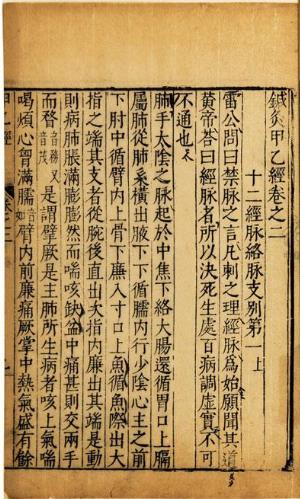 鍼灸甲乙經卷之二
十二經脉絡脉支別第一上
雷公問曰禁脉之言凡刺之理經脉爲始願聞其道
黃帝荅曰經脉者所以決死生處百病調虛實不可
不通也
肺手太陰之脉起於中焦下絡大腸還循胃口上膈
屬肺從肺系橫出腋下下循臑內行少陰心主之前
下肘中循臂內上骨下廉入寸口上魚循魚際出大
指之端其支者從腕後直出次指內廉出其端是動
則病肺脹滿膨膨然而喘咳缺盆中痛甚則交兩手
而瞀音務又音茂是謂臂厥是主肺所生病者咳上氣喘
喝煩心胷滿臑音如臂內前廉痛厥掌中熱氣盛有餘
甲乙經